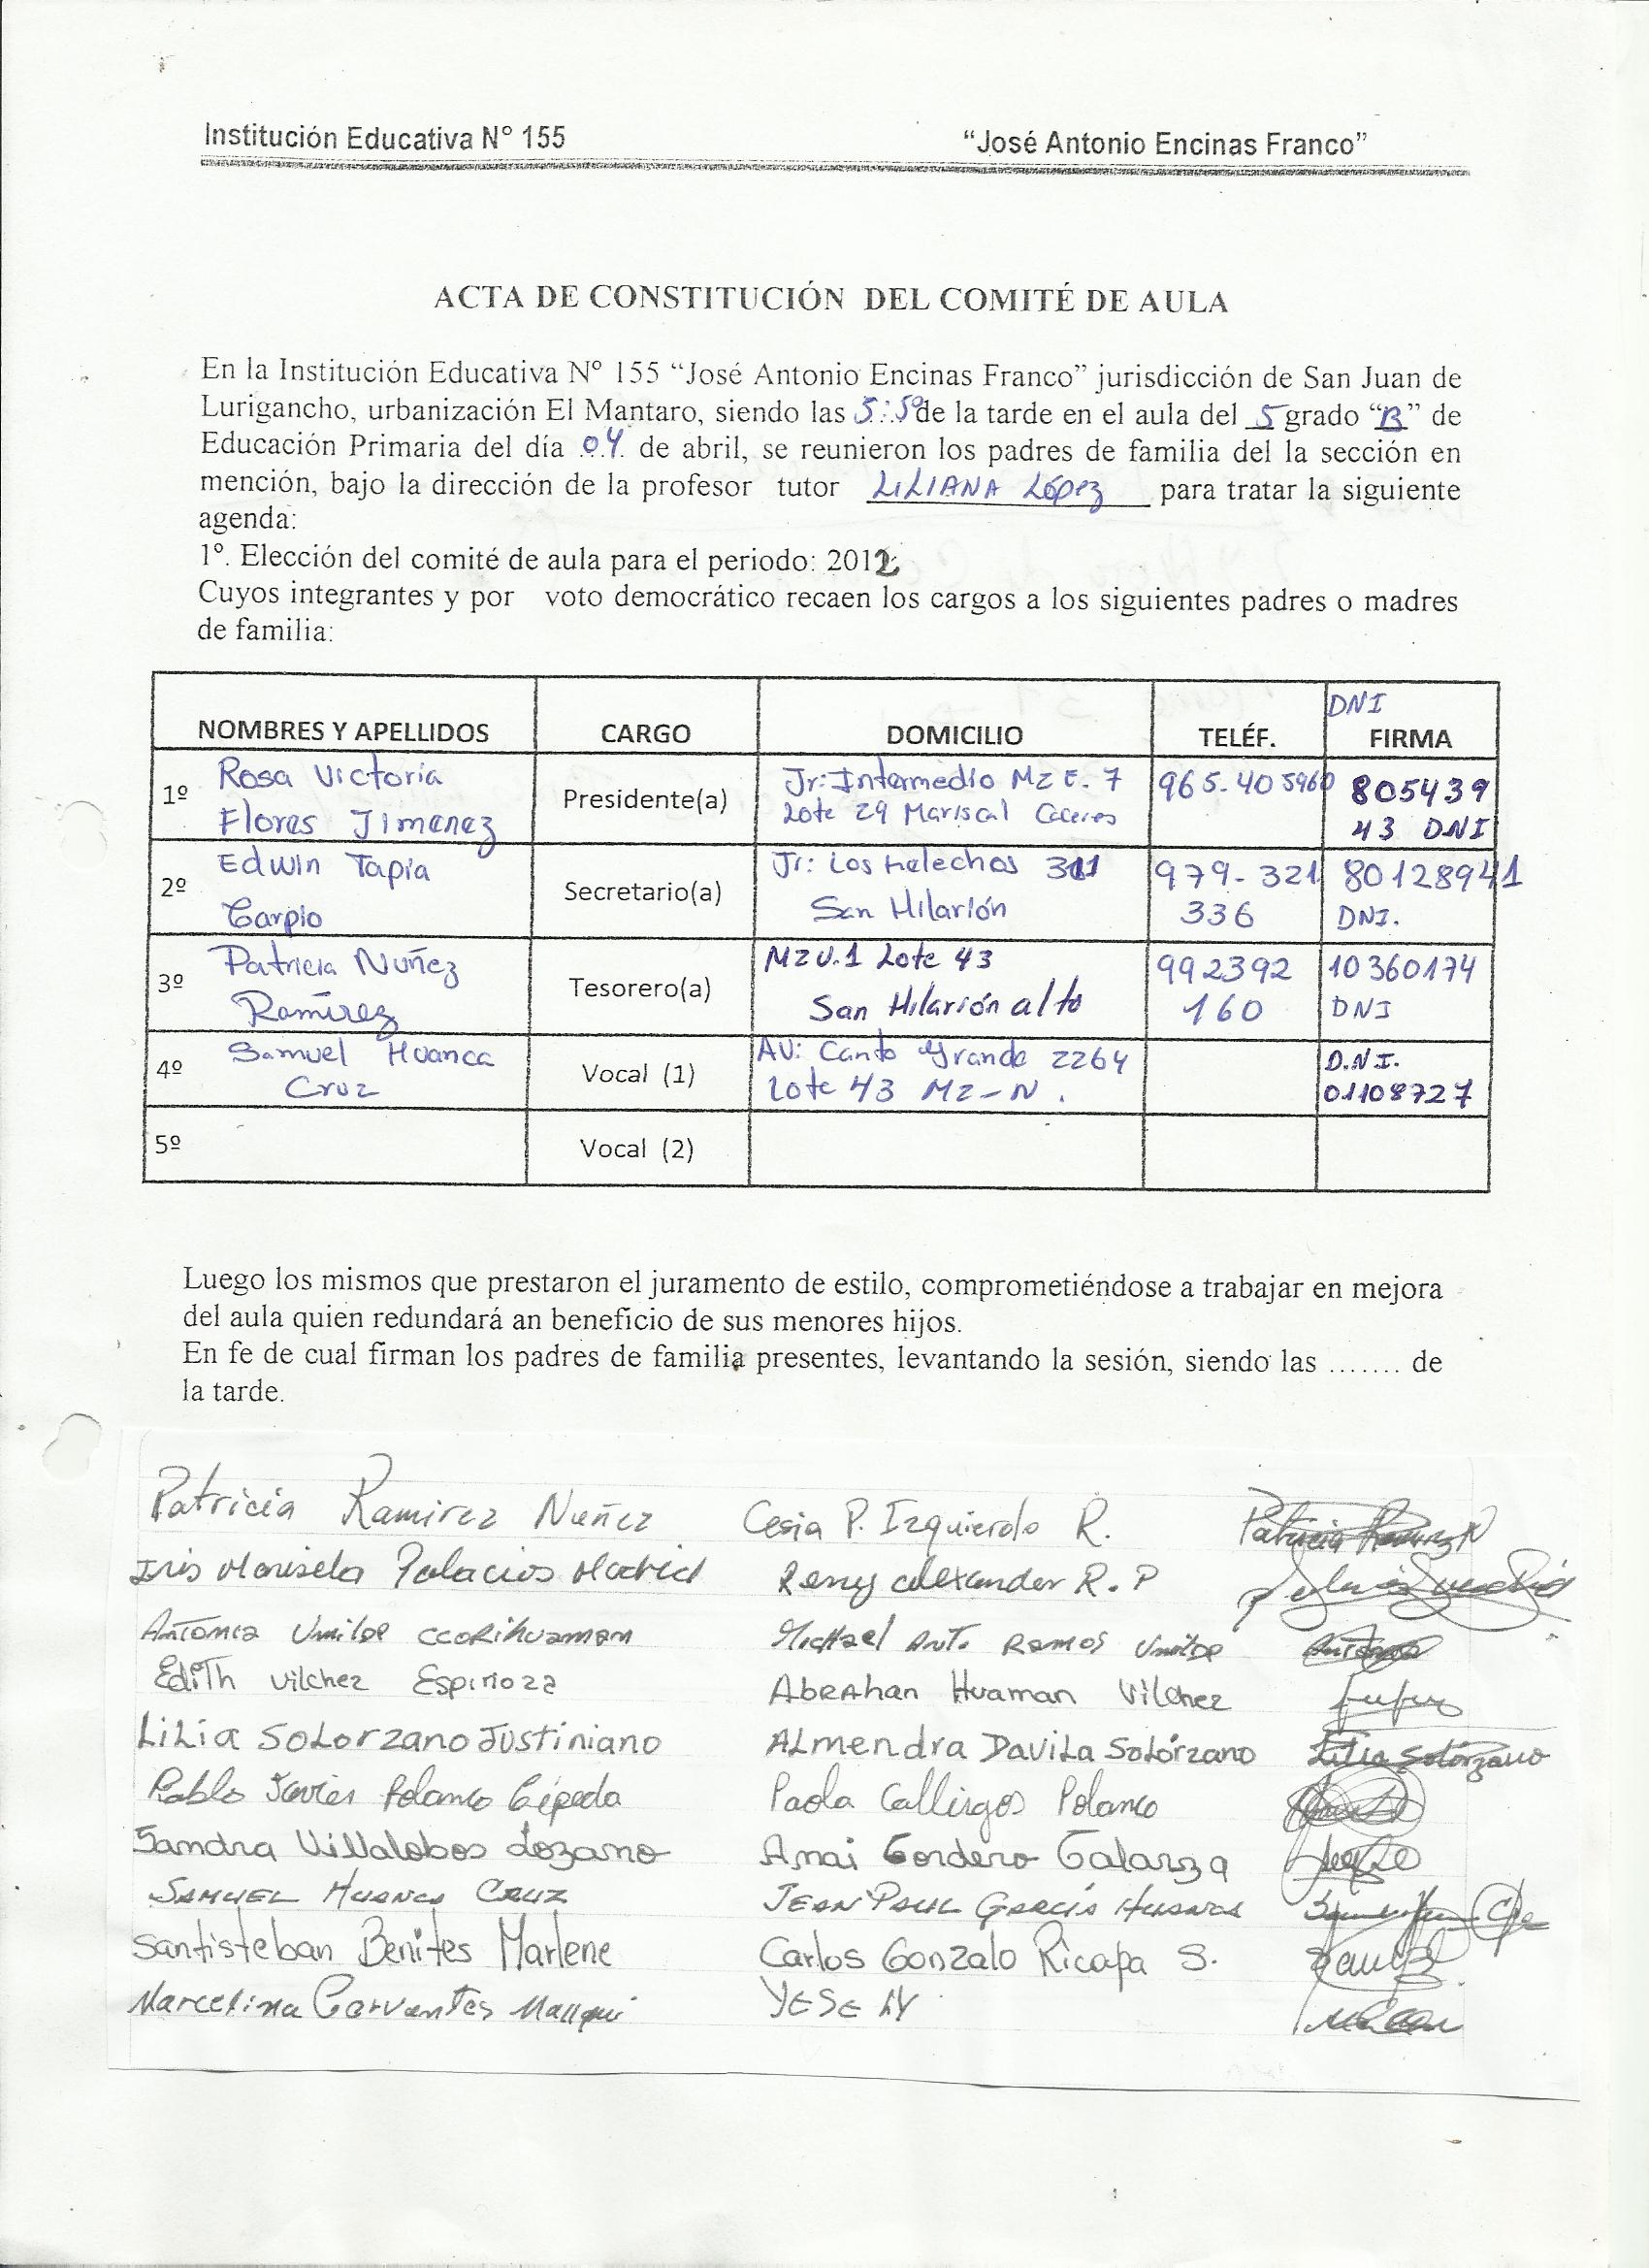 Institución Educativa N° 155 “José Antonio Encinas Franco”
ACTA DE CONSTITUCIÓN DEL COMITÉ DE AULA
En la Institución Educativa N° 155 “José Antonio Encinas Franco” jurisdicción de San Juan de
Lurigancho, urbanización El Mantaro, siendo las 5:50 de la tarde en el aula del 5 grado “B” de
Educación Primaria del día 04 de abril, se reunieron los padres de familia del la sección en
mención, bajo la dirección de la profesor tutor LILIANA López para tratar la siguiente
agenda:
1°. Elección del comité de aula para el periodo: 2012
Cuyos integrantes y por voto democrático recaen los cargos a los siguientes padres o madres
de familia:
DNI
NOMBRES Y APELLIDOS CARGO DOMICILIO TELÉF. FIRMA
1º Rosa Victoria Flores Jimenez Presidente(a) Jr: Intermedio Mz E. 7 Lote 29 Mariscal Caceres 965-405960 805439 43 DNI
2º Edwin Tapia Carpio Secretario(a) Jr: Los Helechos 311 San Hilarión 979-321 336 80128941 DNI.
3º Patricia Nuñez Ramírez Tesorero(a) MZ U.1 Lote 43 San Hilarión alto 992392 160 10360174 DNI
4º Samuel Huanca Cruz Vocal (1) AV: Canto Grande 2264 Lote 43 MZ-N. D.N.I. 01108727
5º Vocal (2)
Luego los mismos que prestaron el juramento de estilo, comprometiéndose a trabajar en mejora
del aula quien redundará an beneficio de sus menores hijos.
En fe de cual firman los padres de familia presentes, levantando la sesión, siendo las ....... de
la tarde.
Patricia Ramirez Nuñez Cesia P. Izquierdo R. Patricia Ramirez N
Iris Marisela Palacios Madrid Reny alexander R. P
Antonia Umilde CCORihuaman Michael Ant. Ramos Umilde Antonia
Edith Vilchez Espinoza Abrahan Huaman Vilchez
LiLia SoLorzano Justiniano ALmendra DaviLa SoLórzano Lilia Solórzano
Pablo Javier Polanco Cépeda Paola Callirgos Polanco
Sandra Villalobos Lozano Anai Cordero Galarza
SAMUEL HUANCA CRUZ JEAN PAUL GARCIA HUANCA
Santisteban Benites Marlene Carlos Gonzalo Ricapa S.
Marcelina Cervantes Mallqui YESE NY